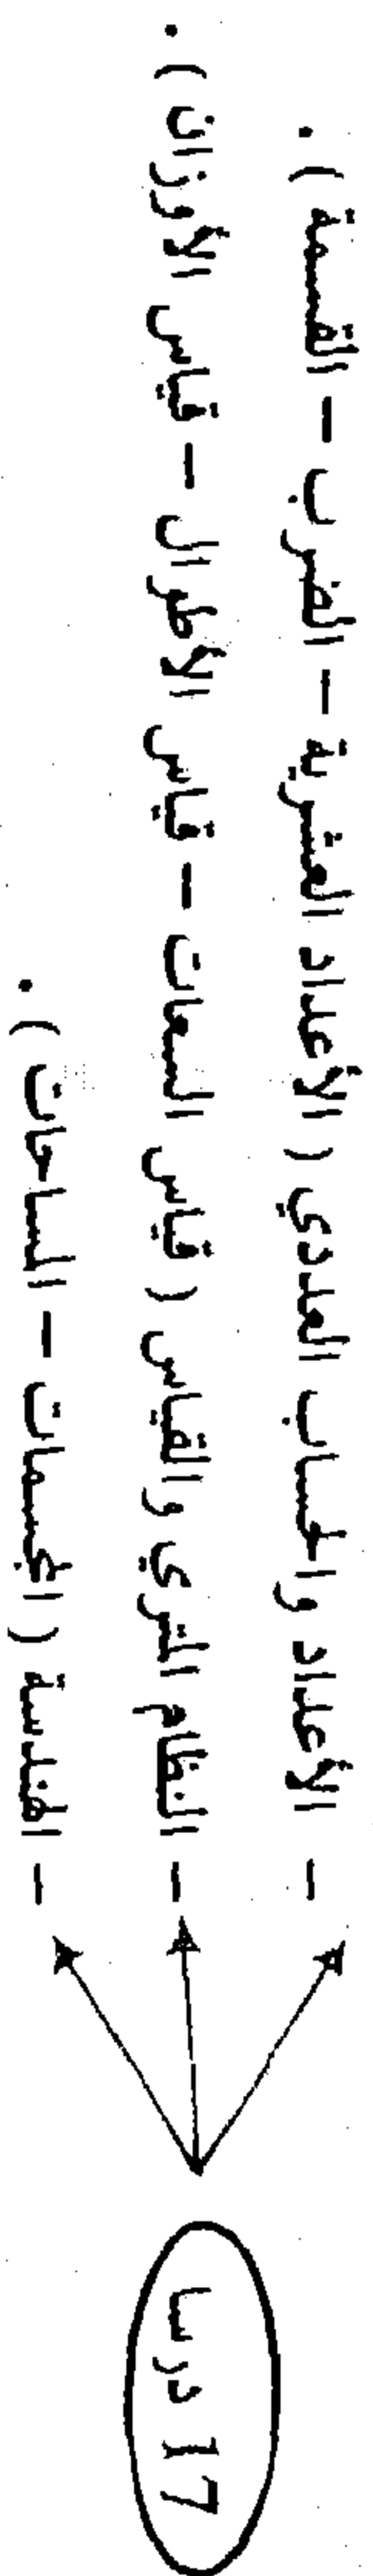 17 درسا
- الأعداد والحساب العددي ( الأعداد العشرية – الضرب – القسمة ) .
- النظام المتري والقياس ( قياس السعات – قياس الأطوال – قياس الأوزان ) .
- الهندسة ( المجسمات – المساحات ) .